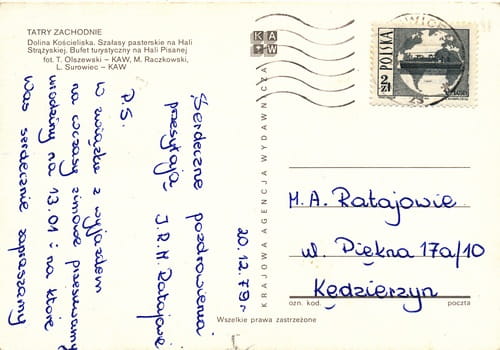 TATRY ZACHODNIE
Dolina Kościeliska. Szałasy pasterskie na Hali
Strążyskiej. Bufet turystyczny na Hali Pisanej
fot. T. Olszewski – KAW, M. Raczkowski,
L. Surowiec – KAW
KAW
POLSKA
2 ZŁ
KRAJOWA AGENCJA WYDAWNICZA
20.12.79r
Serdeczne pozdrowienia
przesyłają J.R.M. Ratajowie
P.S.
W związku z wyjazdem
na wczasy zimowe przesuwamy
urodziny na 13.01 i na które
Was serdecznie zapraszamy
M. A. Ratajowie
ul. Piękna 17a/10
Kędzierzyn
ozn. kod.
poczta
Wszelkie prawa zastrzeżone